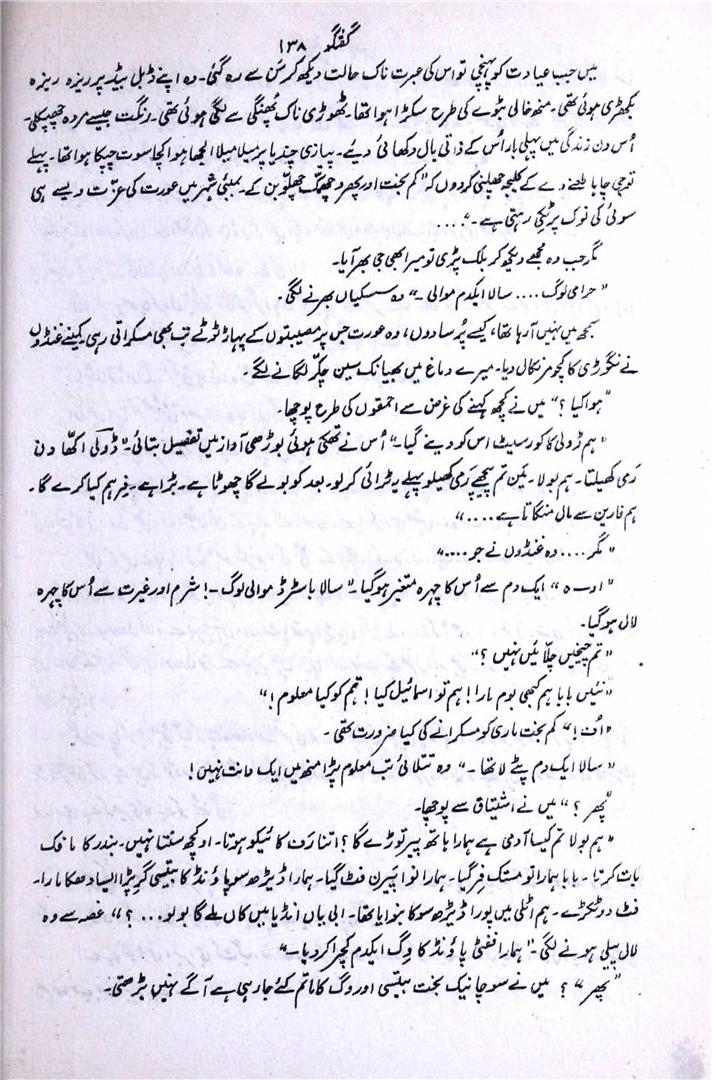 گفتگو ۱۳۸
میں جب عیادت کو پہنچی تو اس کی عبرت ناک حالت دیکھ کر سُن سے رہ گئی۔ وہ اپنے ڈبل بیڈ پر ریزہ ریزہ
بکھری ہوئی تھی۔ منھ خالی بٹوے کی طرح سکڑا ہوا تھا۔ ٹھوڑی ناک پھننگی سے لگی ہوئی تھی۔ رنگت جیسے مردہ چھپکلی۔
اُس دن زندگی میں پہلی بار اُس کے ذاتی بال دکھائی دیئے۔ پیازی چندیا پر میلا میلا الجھا ہوا کچا سوت چپکا ہوا تھا۔ پہلے
تو جی چاہا طعنے دے کے کلیجہ چھلنی کر دوں کہ "کم بخت اور پھرو چھمک چھلّو بن کے۔ بمبئی شہر میں عورت کی عزّت ویسے ہی
سوئی کی نوک پر ٹکی رہتی ہے۔"....
مگر جب وہ مجھے دیکھ کر بلک پڑی تو میرا بھی جی بھر آیا۔
"حرامی لوگ.... سالا ایکدم موالی۔" وہ سسکیاں بھرنے لگی۔
سمجھ میں نہیں آرہا تھا، کیسے پُرسا دوں، وہ عورت جس پر مصیبتوں کے پہاڑ ٹوٹے تب بھی مسکراتی رہی۔ کمینے غنڈوں
نے نگوڑی کا کچومر نکال دیا۔ میرے دماغ میں بھیانک سین چکّر لگانے لگے۔
"ہوا کیا؟" میں نے کچھ کہنے کی غرض سے احمقوں کی طرح پوچھا۔
"ہم ڈولی کا کورسیٹ اس کو دینے گیا۔" اُس نے تھکی ہوئی بوڑھی آواز میں تفصیل بتائی۔ "ڈولی اکھّا دن
رَمی کھیلتا۔ ہم بولا۔ مَین تم پیچھے رَمی کھیلو پہلے یہ ٹرائی کر لو۔ بعد کو بولے گا چھوٹا ہے۔ بڑا ہے۔ پھر ہم کیا کرے گا۔
ہم فارین سے مال منگاتا ہے....."
"مگر.... وہ غنڈوں نے جو...."
"اوہ" ایک دم سے اُس کا چہرہ متغیر ہوگیا۔ "سالا باسٹرڈ موالی لوگ۔! شرم اور غیرت سے اُس کا چہرہ
لال ہوگیا۔
"تم چیخیں چلّائیں نہیں؟"
"نئیں بابا ہم کبھی بوم مارا! ہم تو اسمائیل کیا! تم کو کیا معلوم!"
"اُف!" کم بخت ماری کو مسکرانے کی کیا ضرورت تھی۔
"سالا ایک دم پئے لا تھا۔" وہ تتلائی تب معلوم پڑا منھ میں ایک دانت نہیں!
"پھر؟" میں نے اشتیاق سے پوچھا۔
"ہم بولا تم کیسا آدمی ہے ہمارا ہاتھ پیر توڑے گا؟ اتنا رَف کائیکو ہوتا۔ او کچھ سنتا نہیں۔ بندر کا مافک
بات کرتا۔ بابا ہمارا تو مستک فِر گیا۔ ہمارا نوا ایپرن فٹ گیا۔ ہمارا ڈیڑھ سو پاؤنڈ کا بتیسی گر پڑا ایسا دھکا مارا۔
فٹ دو ٹکڑے۔ ہم اٹلی میں پورا ڈیڑھ سو کا بنوایا تھا۔ ابی یاں انڈیا میں کاں ملے گا بولو...؟" غصہ سے وہ
لال پیلی ہونے لگی۔ "ہمارا ففٹی پاؤنڈ کا وِگ ایکدم کچرا کر دیا۔"
"پھر"؟ میں نے سوچا نیک بخت بتیسی اور وگ کا ماتم کئے جارہی ہے آگے نہیں بڑھتی۔